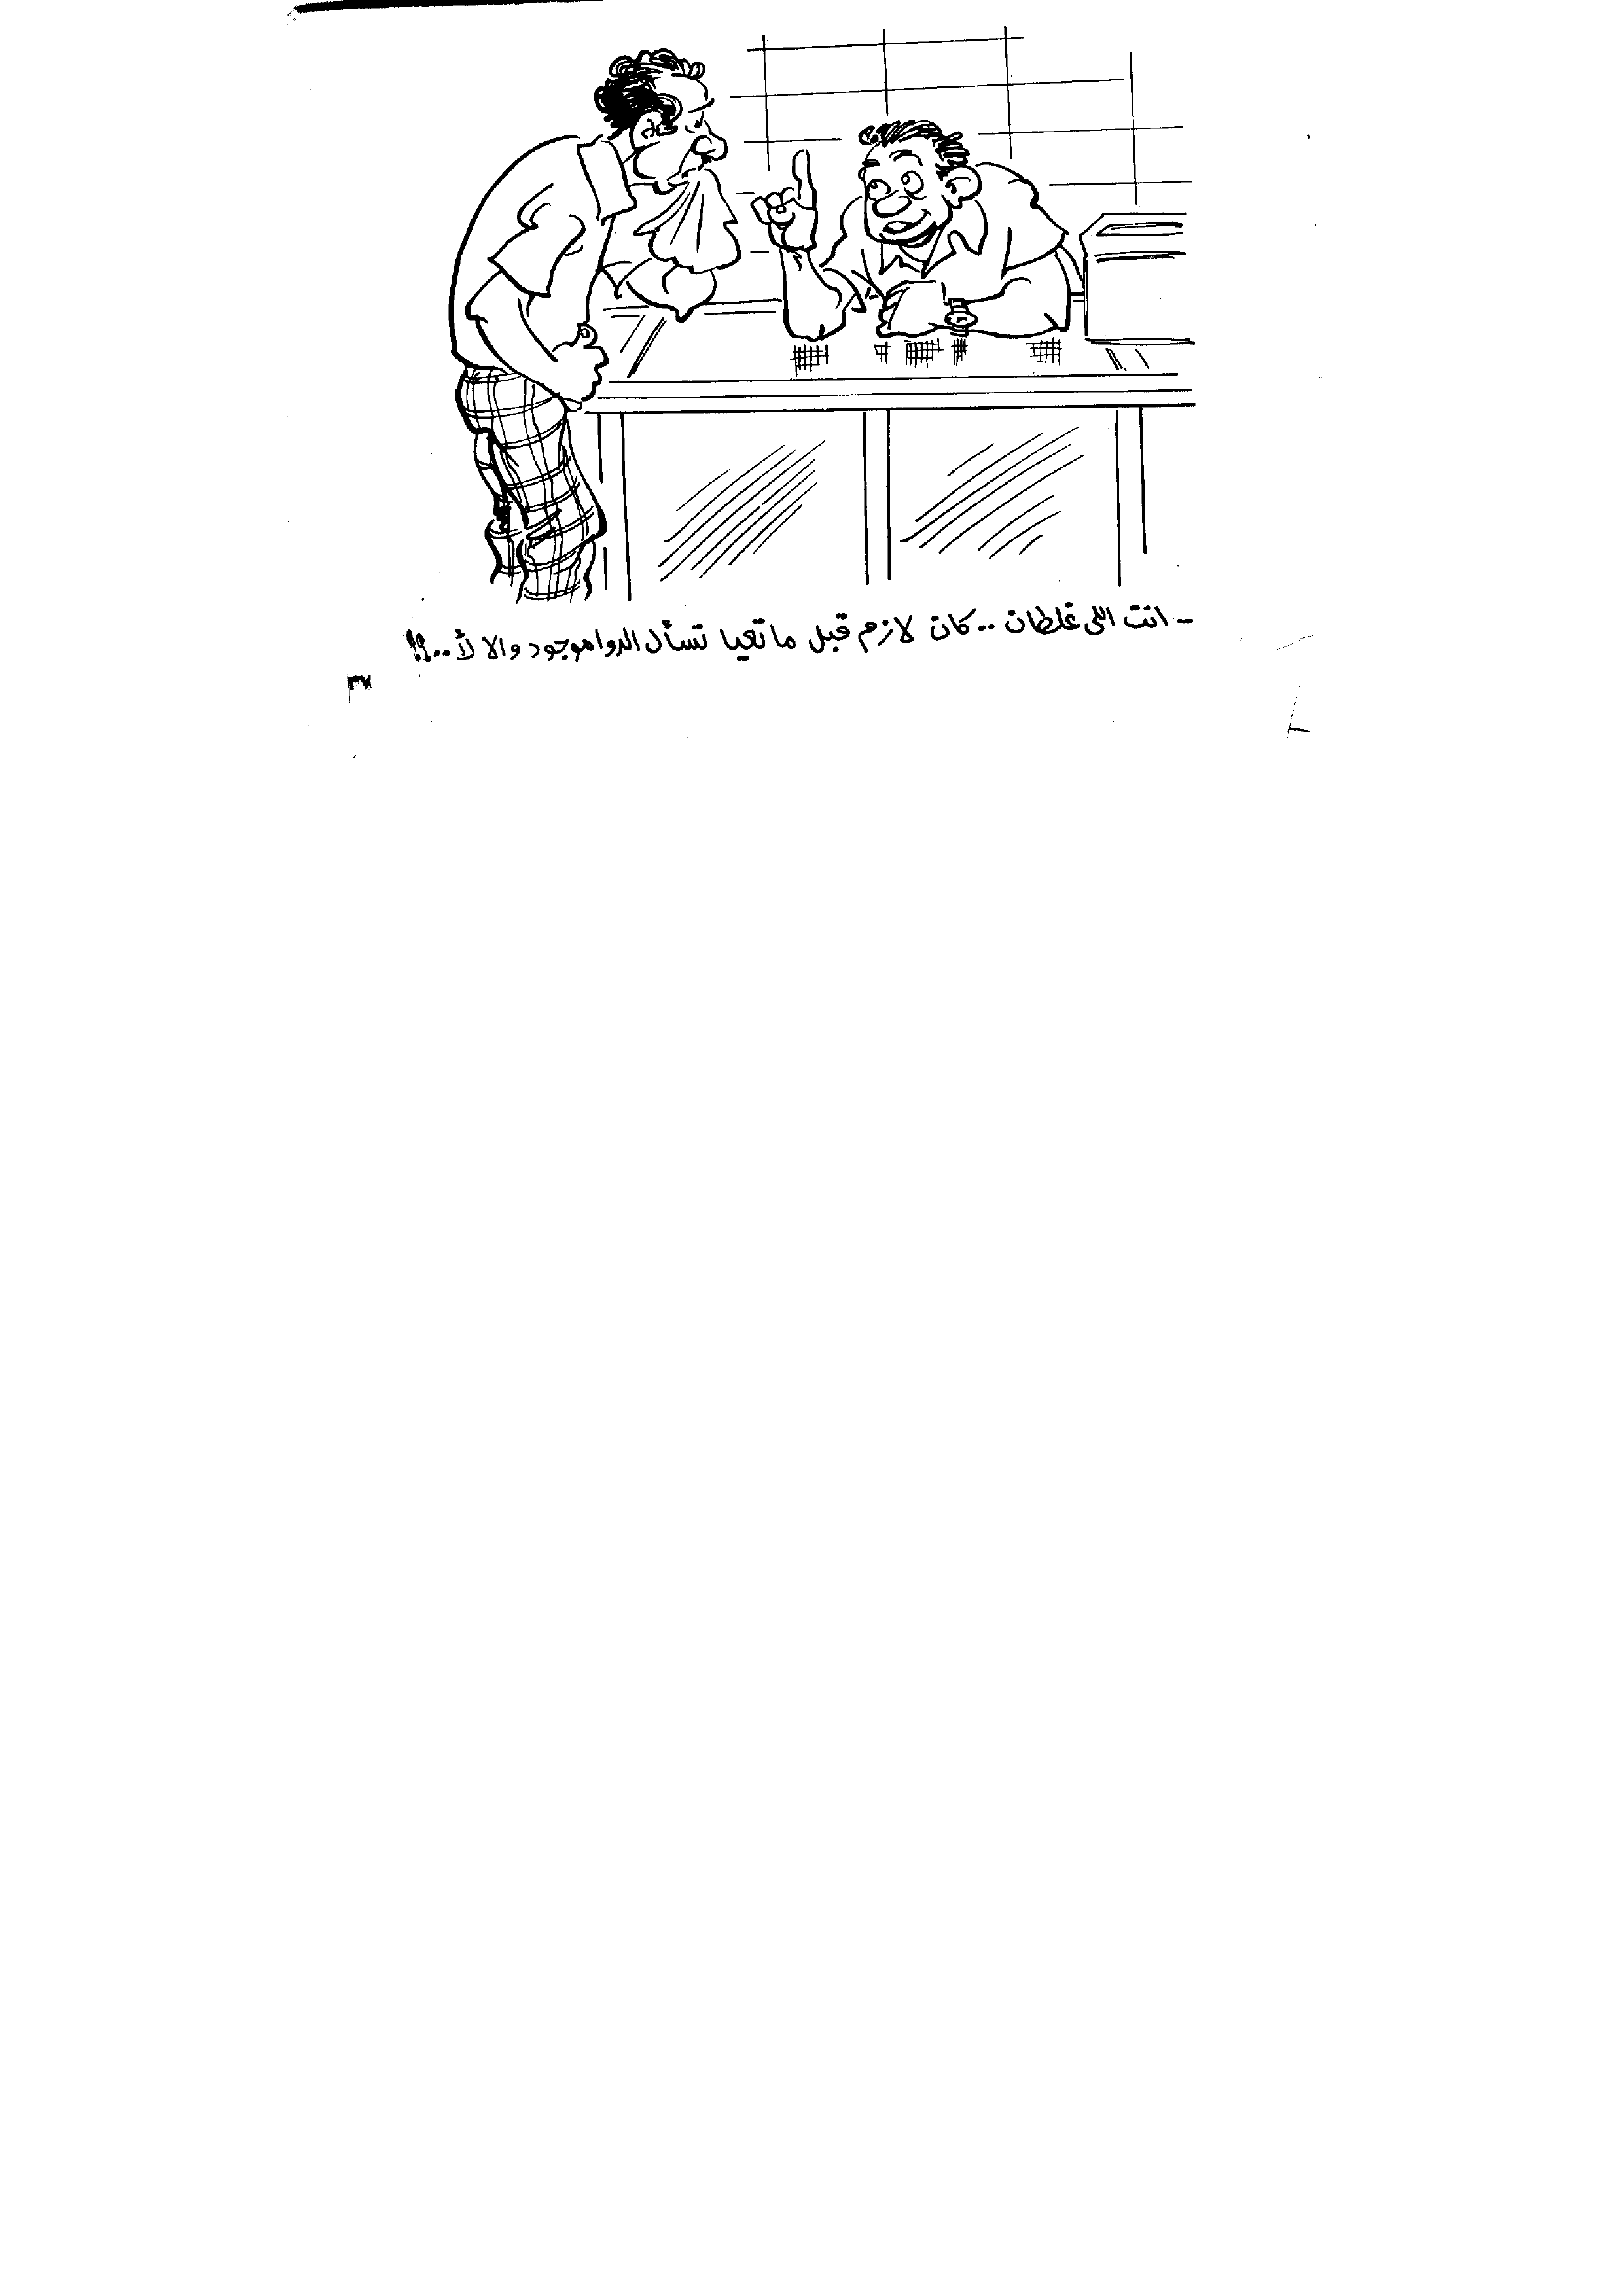 - انت اللى غلطان .. كان لازم قبل ما تعيا تسأل الدوا موجود والا لأ ..؟!
٣٧